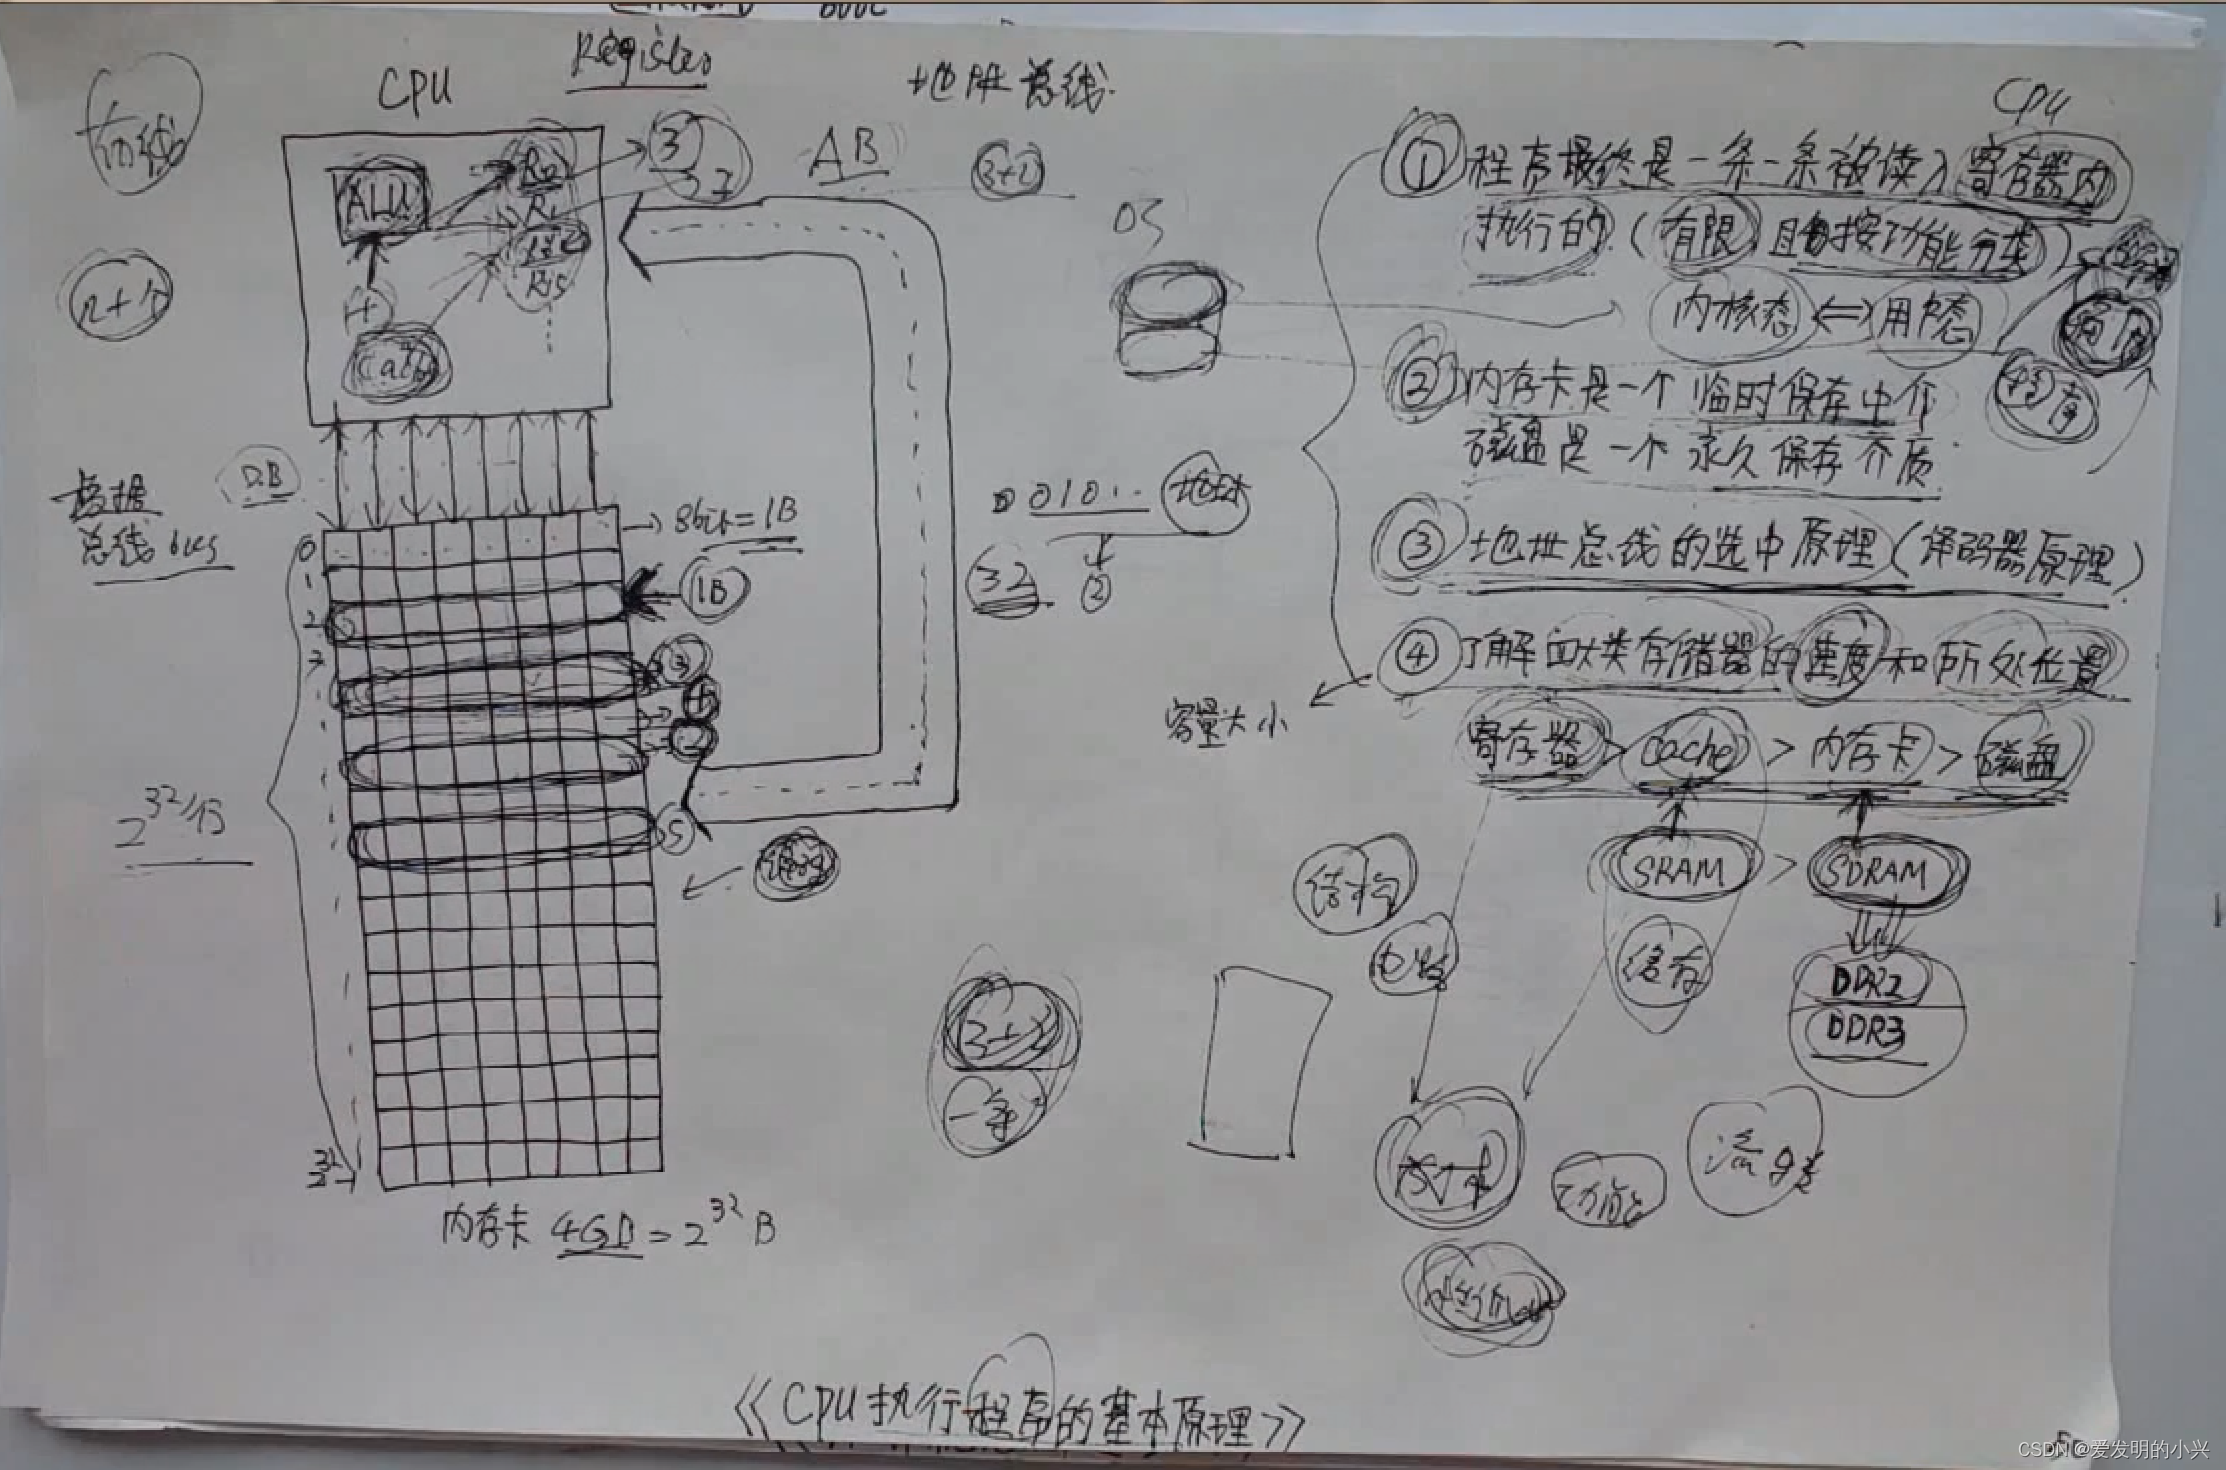 CPU
Register
地址总线
ALU
R0
R1
R15
AB
32
n+个
DB
数据
总线 bus
→ 8bit=1B
1B
0
1
2
3
2^32行
5
内存卡 4GB = 2^32 B
0101..
地址
32
②
OS
CPU
① 程序最终是一条一条被读入寄存器内
执行的 (有限 且每按功能分类)
内核态 ⇔ 用户态
② 内存卡是一个 临时保存中介
磁盘是一个 永久保存介质.
程序
③ 地址总线的选中原理 (译码器原理)
④ 了解四大类存储器的速度和所处位置
容量大小
寄存器 > cache > 内存卡 > 磁盘
SRAM > SDRAM
结构
缓存
DDR2
DDR3
成本
功能
温度
《CPU执行程序的基本原理》
CSDN @爱发明的小兴